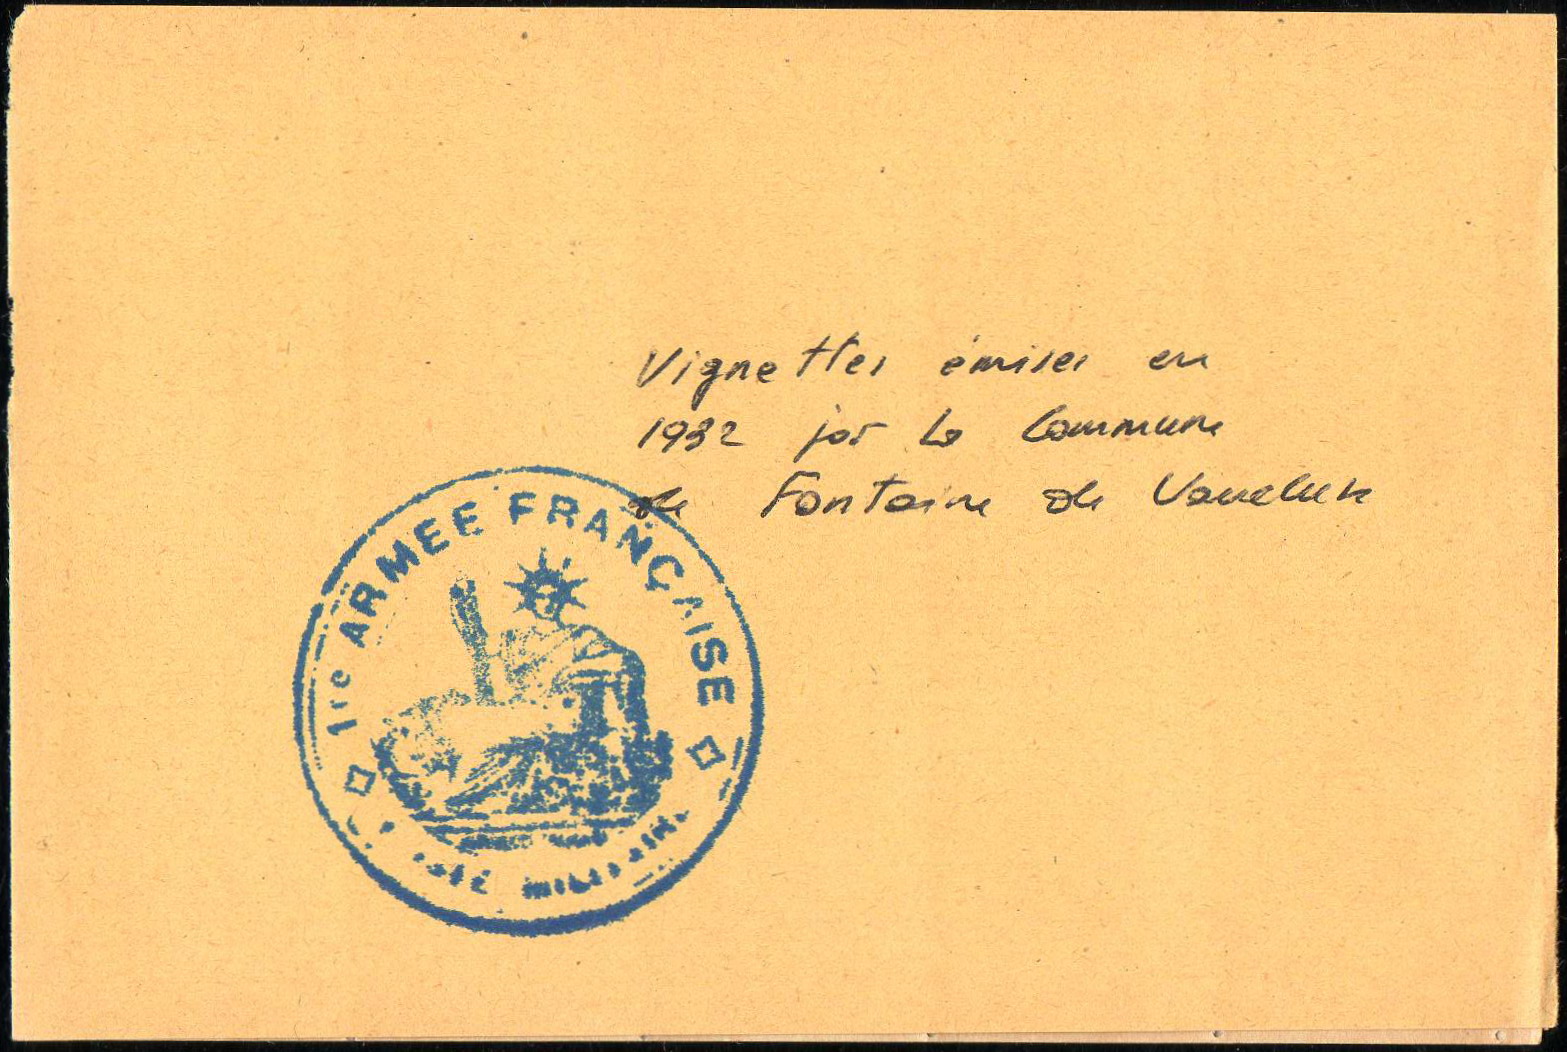 Vignettes émises en
1982 par la Commune
de Fontaine de Vaucluse
1re ARMÉE FRANÇAISE